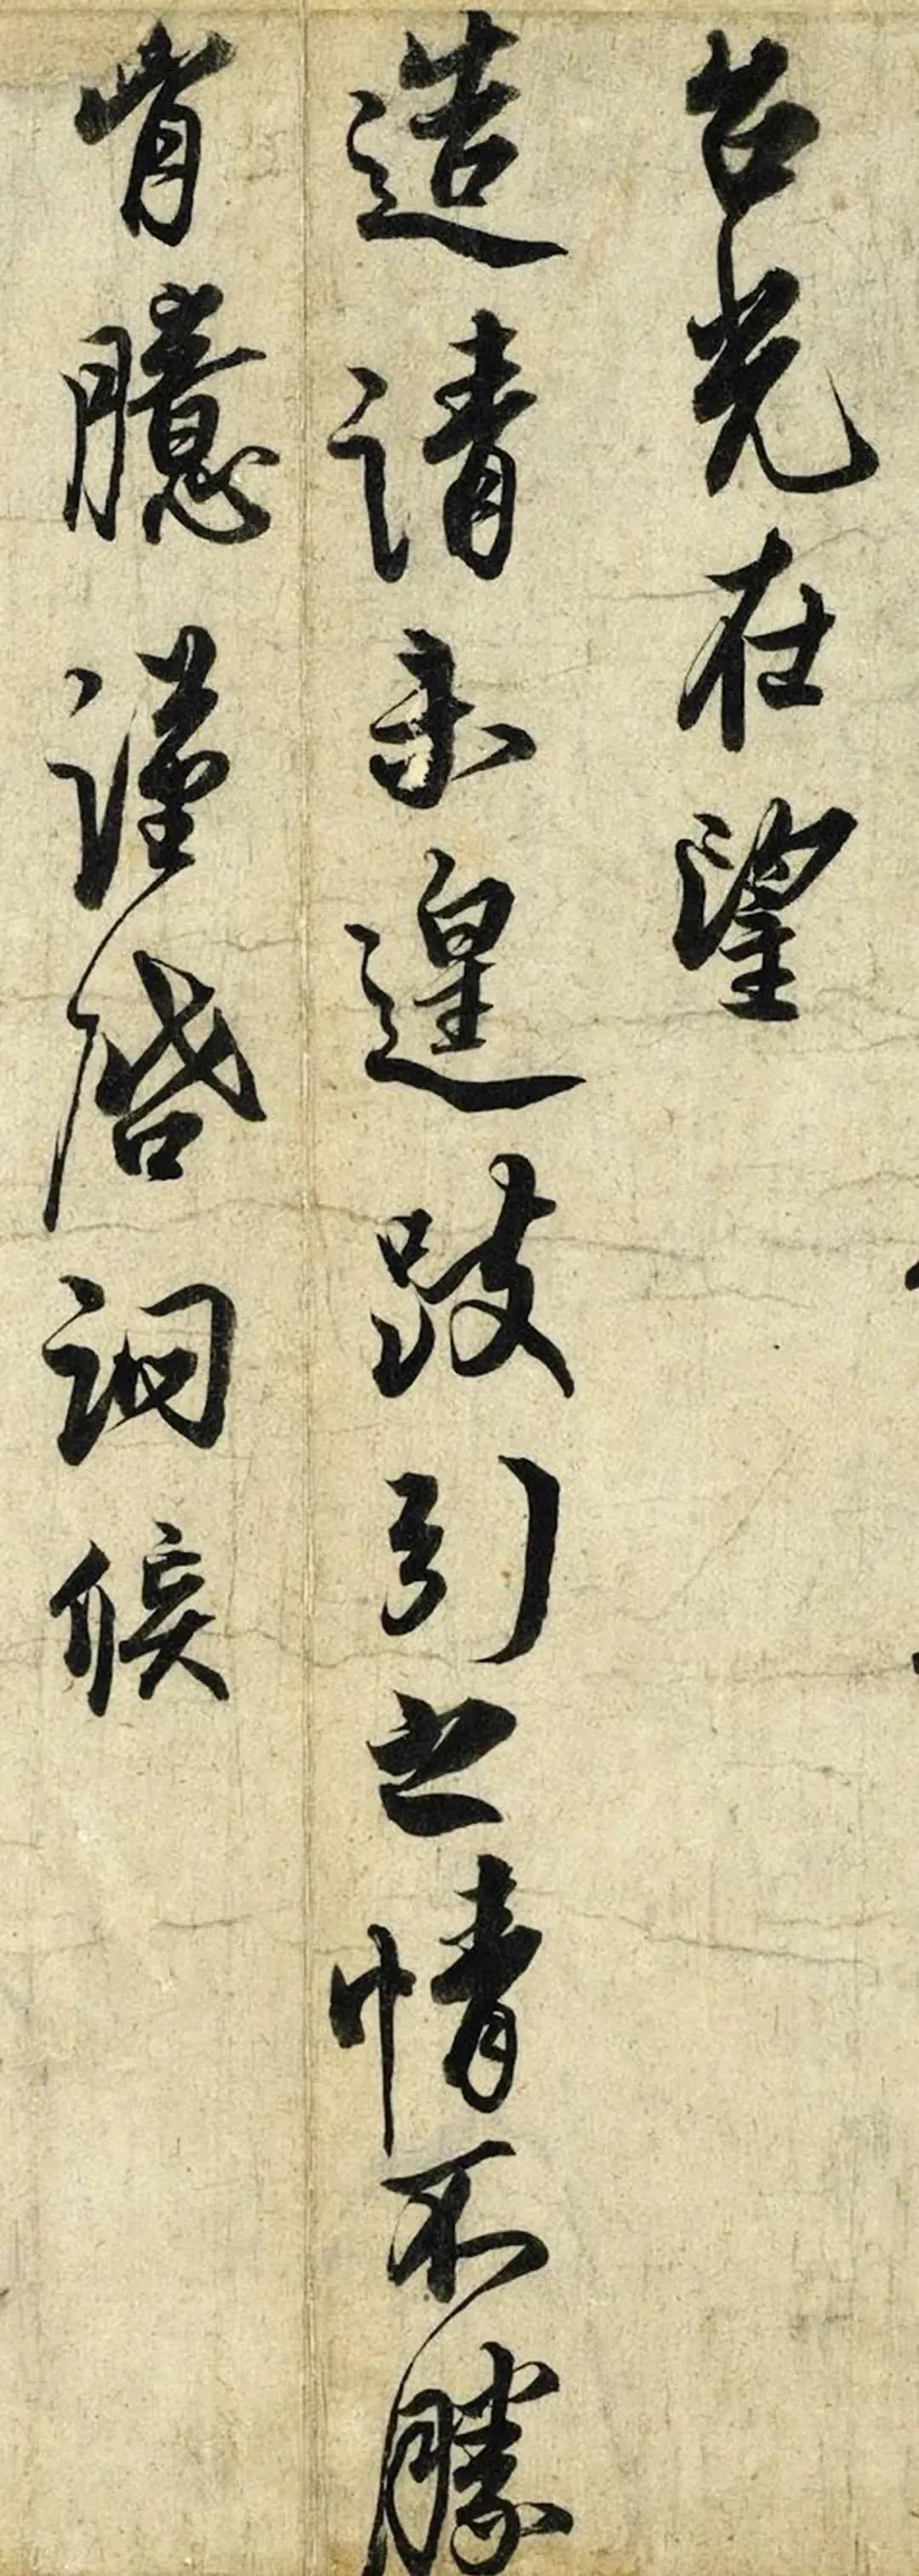 台光在望
造請未遑跂引之情不勝
胷臆謹啓詗候